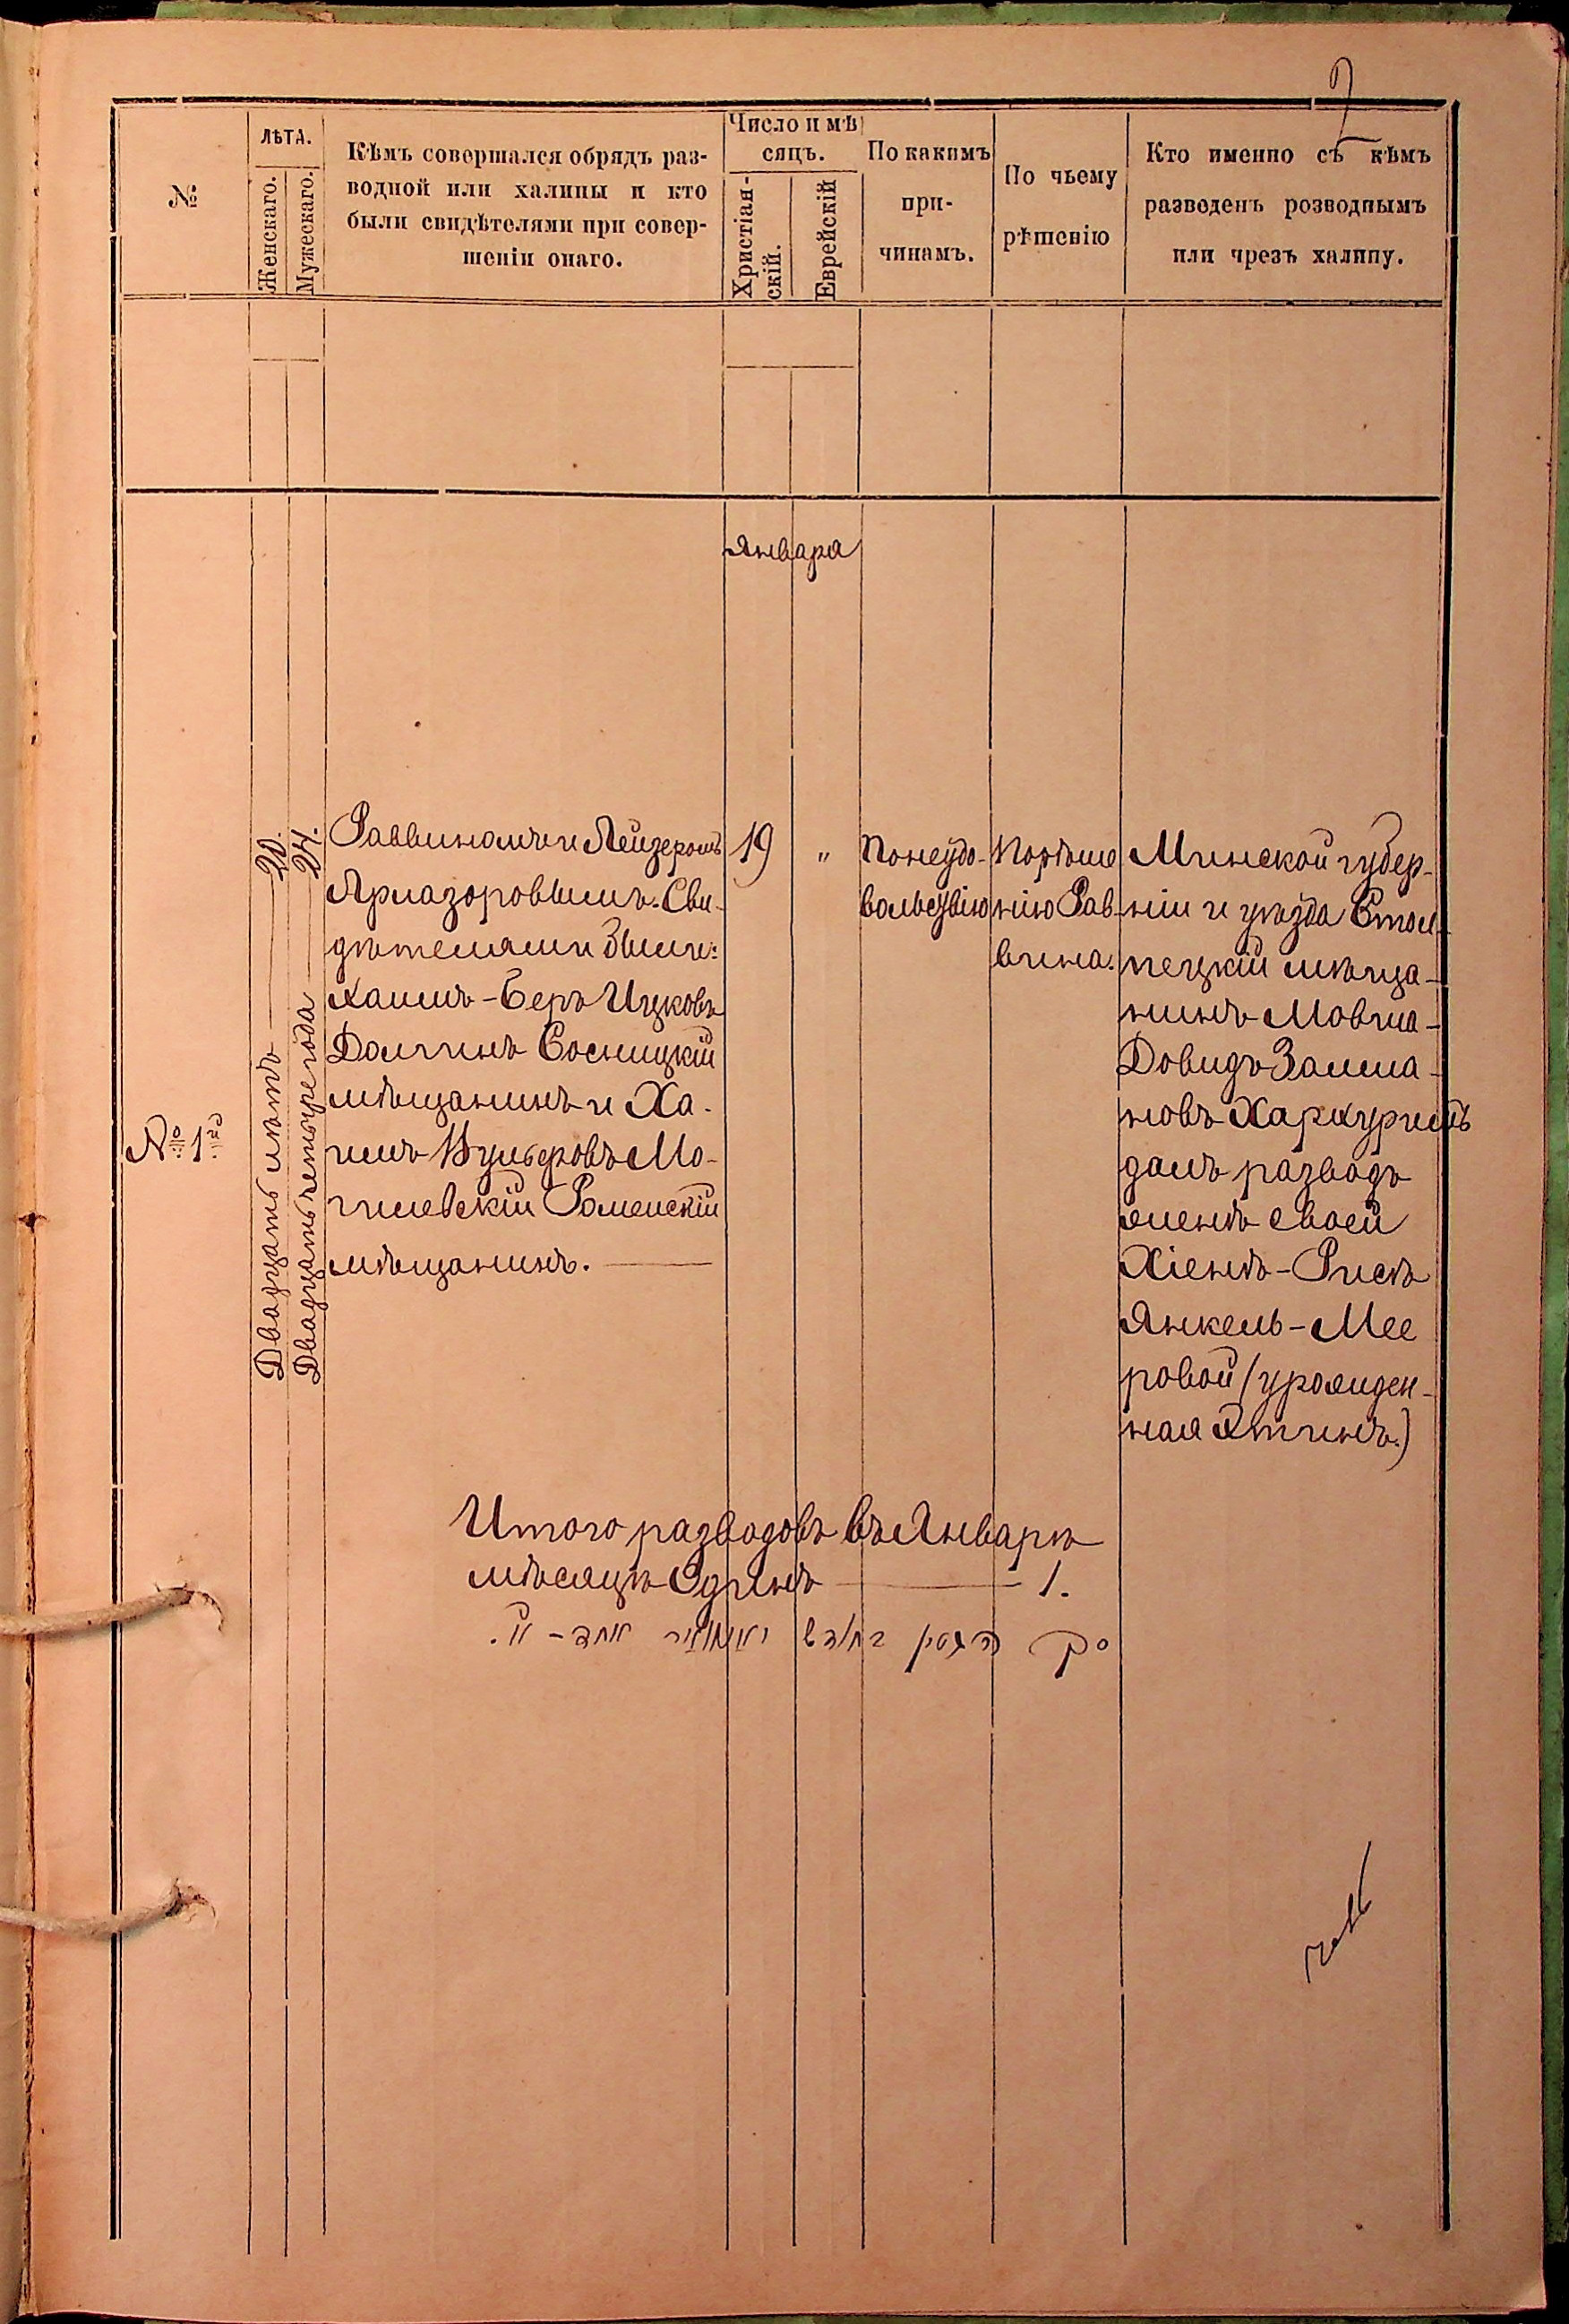 2
№
ЛѢТА.
Женскаго.
Мужескаго.
Кѣмъ совершался обрядъ раз-
водной или халицы и кто
были свидѣтелями при совер-
шеніи онаго.
Число и мѣ
сяцъ.
Христіан-
скій.
Еврейскій
По какимъ
при-
чинамъ.
По чьему
рѣшенію
Кто именно съ кѣмъ
разведенъ розводнымъ
или чрезъ халицу.
Января
№ 1й
Двадцать лѣтъ — 20.
Двадцать четыре года — 24.
Раввиномъ и Лейзеромъ
Арлазоровымъ. Сви-
дѣтелями были:
Хаимъ-Беръ Ицковъ
Долгинъ Сосницкій
мѣщанинъ и Ха-
имъ Вульфовъ Мо-
гилевскій Роменскій
мѣщанинъ. —
19
"
По неудо-
вольствію
По рѣше
нію Рав-
вина.
Минской губер-
ніи и уѣзда Стол-
пецкій мѣща-
нинъ Мовша-
Довидъ Залма-
новъ Хархуримъ
далъ разводъ
женѣ своей
Хіенѣ-Рисѣ
Янкель-Мее
ровой (урожден-
ная Этинъ.)
Итого разводовъ въ Январѣ
мѣсяцѣ Одинъ — 1.